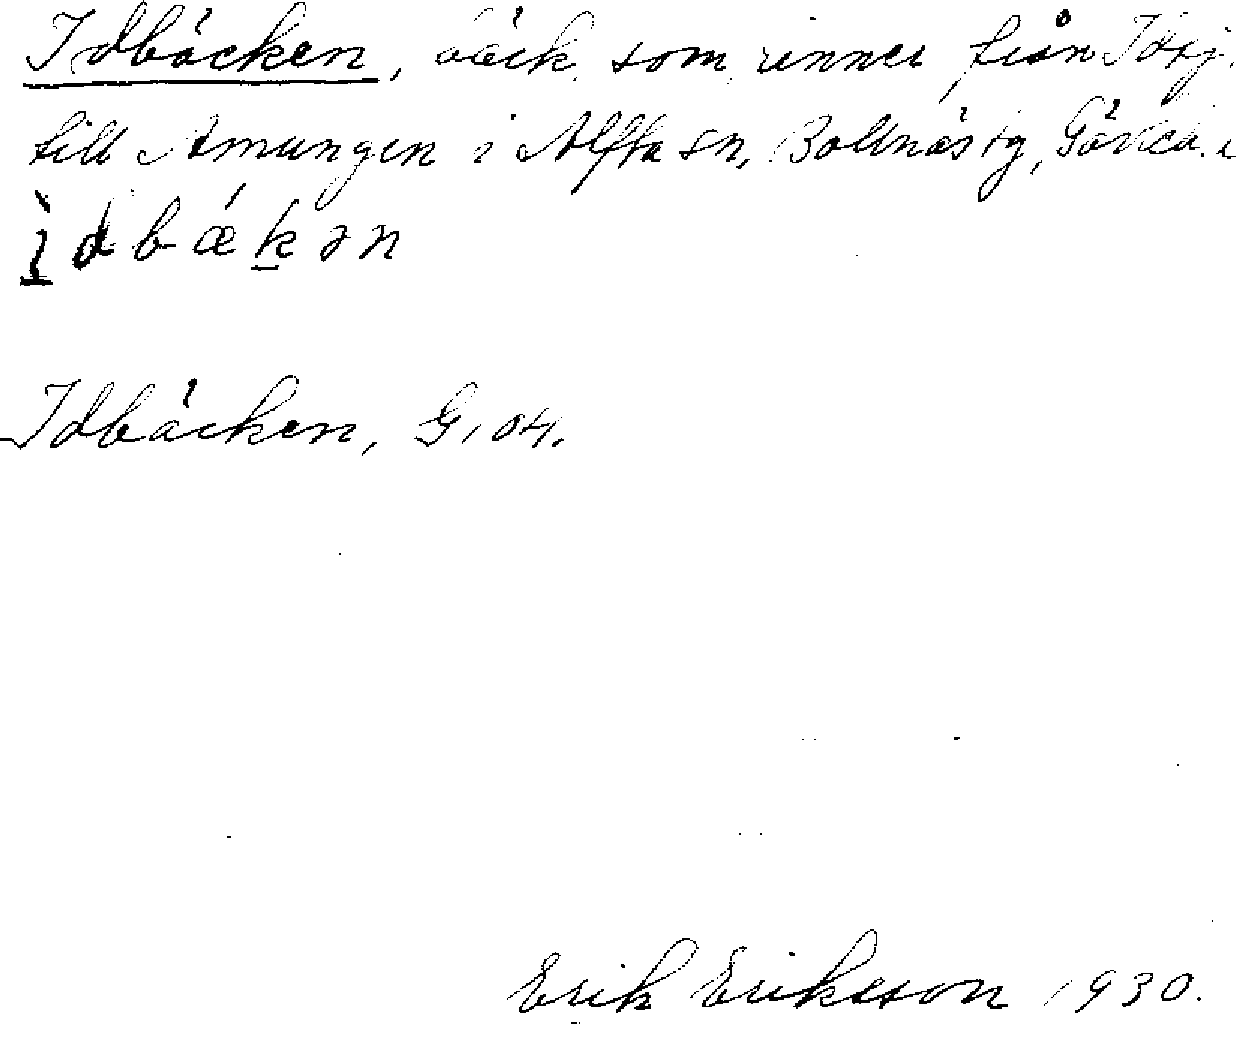 Idbäcken, bäck som rinner från Idsj.
till Amungen i Alfta sn, Bollnäs tg, Gävleb. l
ìdbǽkən
Idbäcken, G, 04.
Erik Erikson 1930.